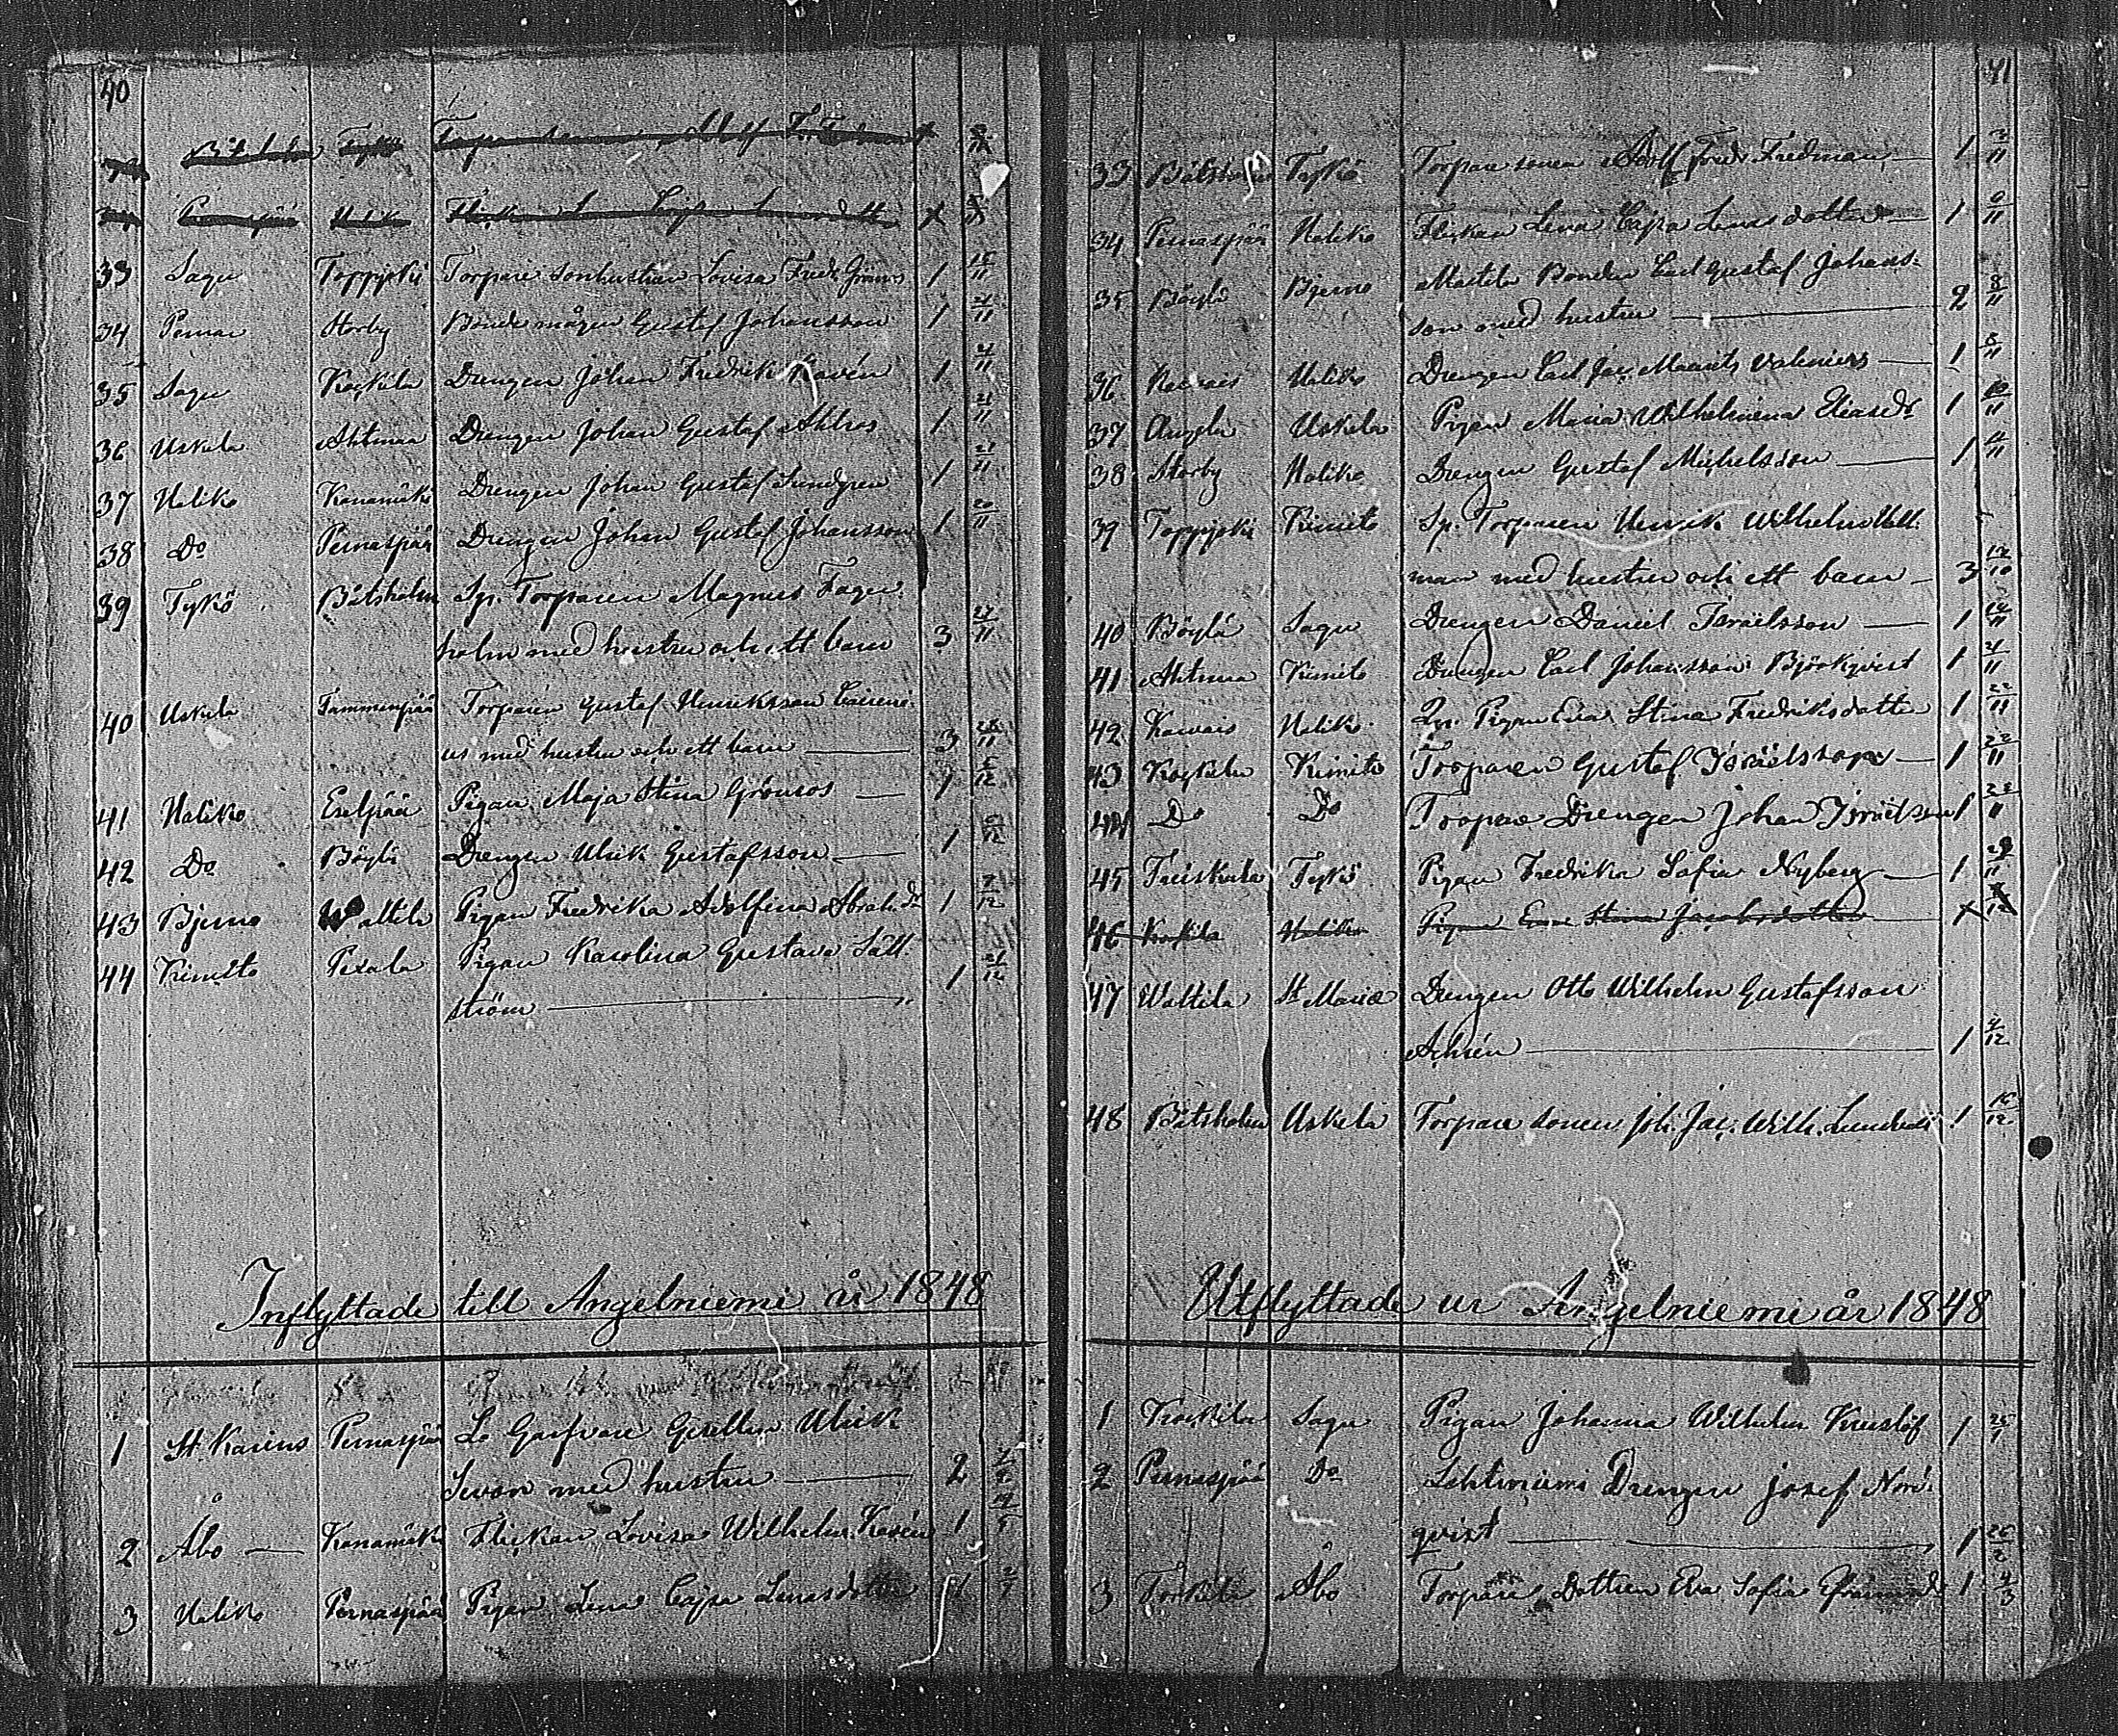 40
Båtsholm Tykö Torpare sonen Adolf Fr. Fredman 1
Pernaspää Haliko Flickan Lena Cajsa Linusdotter 1
33 Sagu Toppjoki Torpare sonhustrun Lovisa Fredr. Grönros 1 15/11
34 Pernar Storby Bonde mågen Gustaf Johansson 1 21/11
35 Sagu Kockila Drengen Johan Fredrik Kavén 1 21/11
36 Uskela Ahtmaa Drengen Johan Gustaf Ahlros 1 21/11
37 Haliko Kanamäki Drengen Johan Gustaf Sundgren 1 21/11
38 Do Pernaspää Drengen Johan Gustaf Johansson 1 20/11
39 Tykö Båtsholm Sp. Torparen Magnus Fager-
holm med hustru och ett barn 3 27/11
40 Uskela Tammenpää Torparen Gustaf Henriksson
us med hustru och ett barn 3 28/11
41 Haliko Esselpää Pigan Maja Stina Grönroos 1 5/12
42 Do Böylä Drengen Ulrik Gustafsson 1 /12
43 Bjerno Wattila Pigan Fredrika Adolfina Abrah.dr 1 7/12
44 Kimito Pexala Pigan Karolina Gustava Sält-
ström 1 21/12
Inflyttade till Angelniemi år 1848
1 St Karins Pernaspää Lo Garfvare Gesellen Ulrik
med hustru 2
2 Åbo Kanamäki Flickan Lovisa Wilhelm. Kasén 1 19/5
3 Haliko Pernaspää Pigan Lena Cajsa Linusdotter 1
41
33 Båtsholm Tykö Torpare sonen Adolf Fredr. Fredman 1 3/11
34 Pernaspää Haliko Flickan Lena Cajsa Linusdotter 1 6/11
35 Böylä Bjerno Mattila Bonden Carl Gustaf Johans-
son med hustru 2 8/11
36 Karvais Haliko Drengen Carl Jac. Maurits Valenius 1 8/11
37 Angela Uskela Pigan Maria Wilhelmina Eliasdr 1 10/11
38 Storby Haliko Drengen Gustaf Michelsson 1 11/11
39 Toppjoki Kimito Sp. Torparen Henrik Wilhelm Hell-
man med hustru och ett barn 3 12/10
40 Böylä Sagu Drengen Daniel Israelsson 1 14/11
41 Ahtmaa Kimito Drengen Carl Johansson Björkqvist 1 21/11
42 Karvais Haliko Qv. Pigan Eva Stina Fredriksdotter 1 22/11
43 Kockila Kimito Torparen Gustaf Israëlsson 1 22/11
44 Do Do Torpare Drengen Johan Israëlsson 1 22/11
45 Treiskula Tykö Pigan Fredrika Sofia Nyberg 1 29/11
46 Kockila Haliko Pigan Eva Stina Jacobsdotter 1
47 Wattila St Marie Drengen Otto Wilhelm Gustafsson
Achrén 1 4/12
48 Båtsholm Uskela Torpare sonen Joh. Jac. Wilh. Lundvall 1 16/12
Utflyttade ur Angelniemi år 1848
1 Kockila Sagu Pigan Johanna Wilhelm. Kreuslöf 1 25/1
2 Pernaspää Do Lehtiniemi Drengen Josef Nord-
qvist 1 26/2
3 Torkkila Åbo Torpare Dottren Eva Sofia Efraimsdr 1 4/3